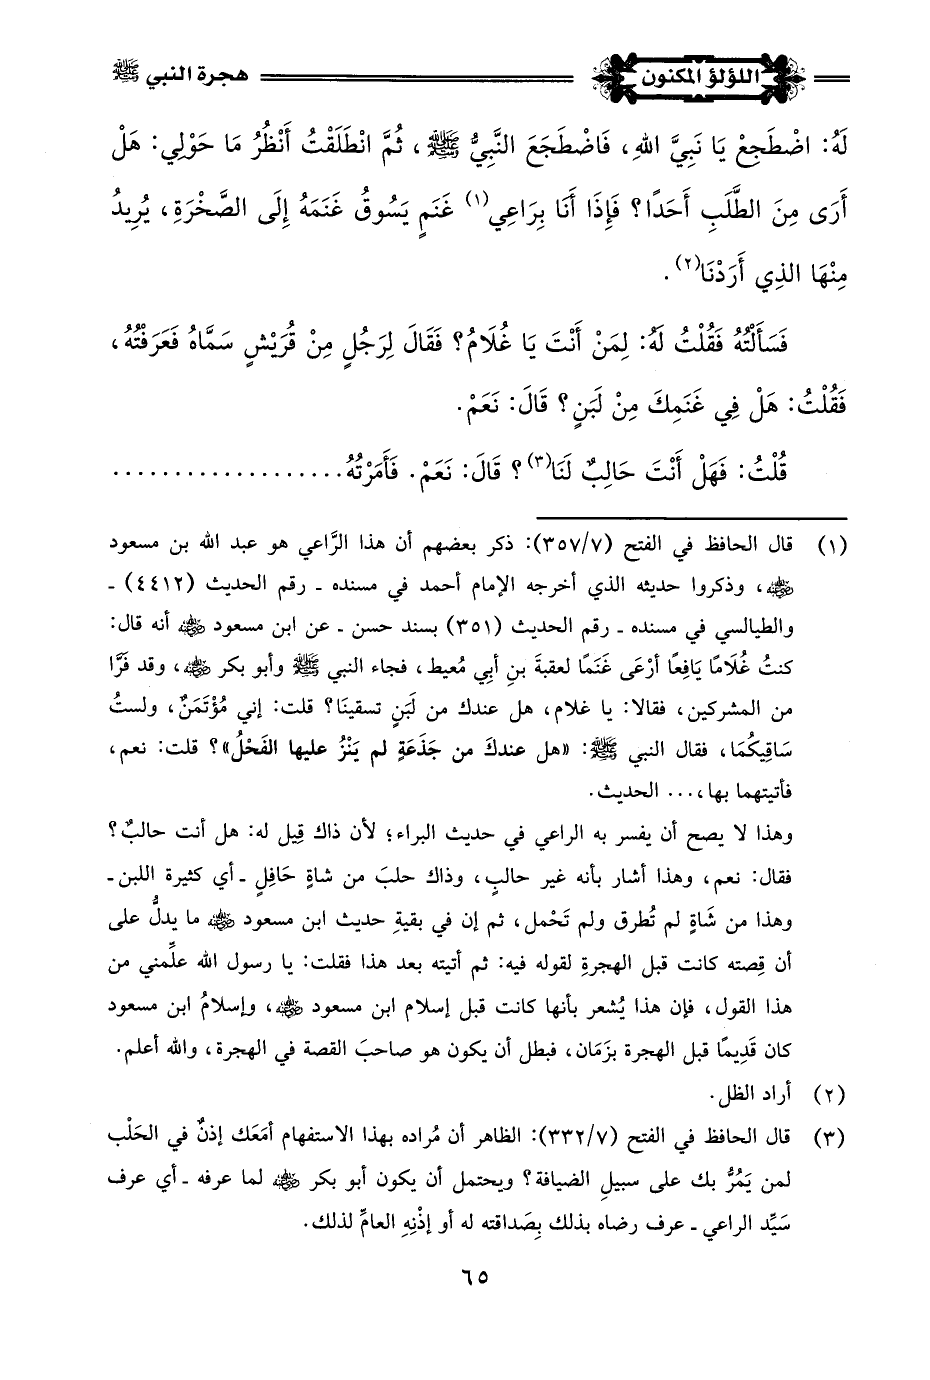 اللؤلؤ المكنون هجرة النبي ﷺ
لَهُ: اضْطَجِعْ يَا نَبِيَّ اللهِ، فَاضْطَجَعَ النَّبِيُّ ﷺ، ثُمَّ انْطَلَقْتُ أَنْظُرُ مَا حَوْلِي: هَلْ
أَرَى مِنَ الطَّلَبِ أَحَدًا؟ فَإِذَا أَنَا بِرَاعِي(١) غَنَمٍ يَسُوقُ غَنَمَهُ إِلَى الصَّخْرَةِ، يُرِيدُ
مِنْهَا الذِي أَرَدْنَا(٢).
فَسَأَلْتُهُ فَقُلْتُ لَهُ: لِمَنْ أَنْتَ يَا غُلَامُ؟ فَقَالَ لِرَجُلٍ مِنْ قُرَيْشٍ سَمَّاهُ فَعَرَفْتُهُ،
فَقُلْتُ: هَلْ فِي غَنَمِكَ مِنْ لَبَنٍ؟ قَالَ: نَعَمْ.
قُلْتُ: فَهَلْ أَنْتَ حَالِبٌ لَنَا(٣)؟ قَالَ: نَعَمْ. فَأَمَرْتُهُ...................
(١) قال الحافظ في الفتح (٣٥٧/٧): ذكر بعضهم أن هذا الرَّاعي هو عبد الله بن مسعود
رضي الله عنه، وذكروا حديثه الذي أخرجه الإمام أحمد في مسنده ـ رقم الحديث (٤٤١٢) ـ
والطيالسي في مسنده ـ رقم الحديث (٣٥١) بسند حسن ـ عن ابن مسعود رضي الله عنه أنه قال:
كنتُ غُلَامًا يَافِعًا أرْعَى غَنَمًا لعقبةَ بنِ أبِي مُعيط، فجاء النبي ﷺ وأبو بكر رضي الله عنه، وقد فَرَّا
من المشركين، فقالا: يا غلام، هل عندك من لَبَنٍ تسقينَا؟ قلت: إني مُؤْتَمَنٌ، ولستُ
سَاقِيكُمَا، فقال النبي ﷺ: «هل عندكَ من جَذَعَةٍ لم يَنْزُ عليها الفَحْلُ»؟ قلت: نعم،
فأتيتهما بها،... الحديث.
وهذا لا يصح أن يفسر به الراعي في حديث البراء؛ لأن ذاك قِيل له: هل أنت حالبٌ؟
فقال: نعم، وهذا أشار بأنه غير حالبٍ، وذاك حلبَ من شاةٍ حَافِلٍ ـ أي كثيرة اللبن ـ
وهذا من شَاةٍ لم تُطرق ولم تَحْمل، ثم إن في بقيةِ حديث ابن مسعود رضي الله عنه ما يدلُّ على
أن قِصته كانت قبل الهجرةِ لقوله فيه: ثم أتيته بعد هذا فقلت: يا رسول الله علِّمني من
هذا القول، فإن هذا يُشعر بأنها كانت قبل إسلام ابن مسعود رضي الله عنه، وإسلامُ ابن مسعود
كان قَدِيمًا قبل الهجرة بزَمَان، فبطل أن يكون هو صاحبَ القصة في الهجرة، والله أعلم.
(٢) أراد الظل.
(٣) قال الحافظ في الفتح (٣٣٢/٧): الظاهر أن مُراده بهذا الاستفهام أمَعَك إذنٌ في الحَلْب
لمن يَمُرُّ بك على سبيلِ الضيافة؟ ويحتمل أن يكون أبو بكر رضي الله عنه لما عرفه ـ أي عرف
سَيِّد الراعي ـ عرف رضاه بذلك بِصَداقته له أو إذْنِهِ العامِّ لذلك.
٦٥